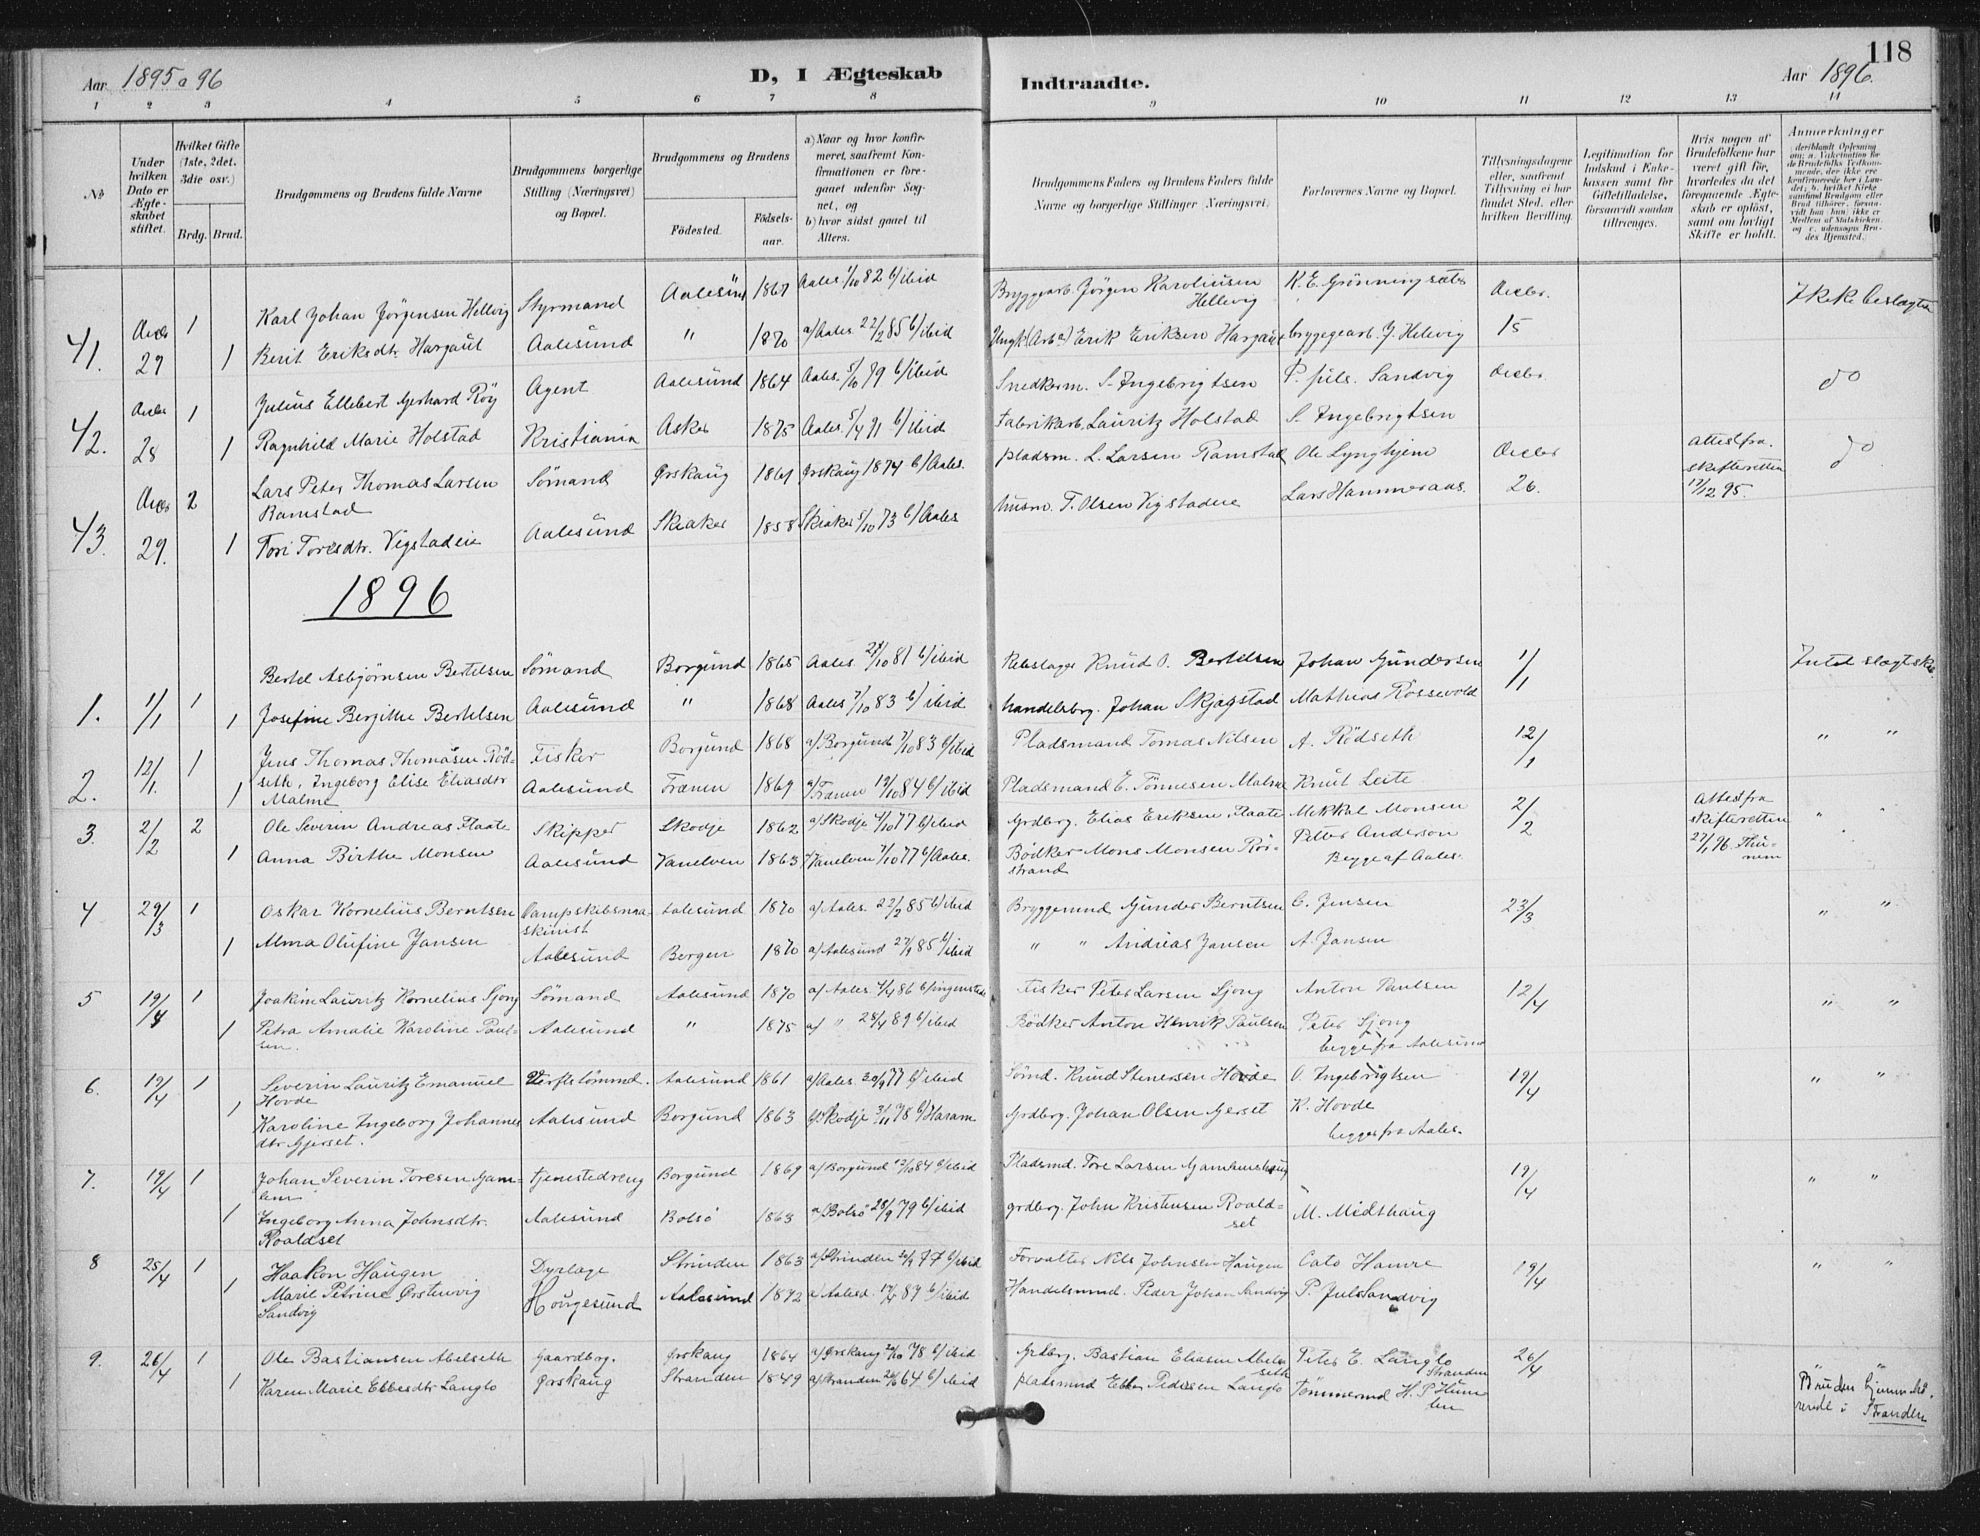 Aar 1895 o 96
D, I Ægteskab
Indtraadte.
Aar 1896.
118
1 2 3 4 5 6 7 8 9 10 11 12 13 14
No
Under hvilken Dato er Ægteskabet stiftet.
Hvilket Gifte (1ste, 2det, 3die osv.)
Brdg. Brud.
Brudgommens og Brudens fulde Navne
Brudgommens borgerlige Stilling (Næringsvei) og Bopæl.
Brudgommens og Brudens
Födested.
Födsels-aar.
a) Naar og hvor konfirmeret, saafremt Konfirmationen er foregaaet udenfor Sognet, og
b) hvor sidst gaaet til Alters.
Brudgommens Faders og Brudens Faders fulde Navne og borgerlige Stillinger (Næringsvei)
Forlovernes Navne og Bopæl.
Tillysningsdagene eller, saafremt Tillysning ei har fundet Sted, efter hvilken Bevilling.
Legitimation for Indskud i Enkekassen samt for Giftetilladelse, forsaavidt saadan tiltrænges.
Hvis nogen af Brudefolkene har været gift før, hvorledes da det foregaaende Ægteskab er opløst, samt om lovligt Skifte er holdt.
Anmærkninger
41. Decbr 29 1 Karl Johan Jörgensen Hellvig Styrmand Aalesund 1867 Aales. 1/10 82 b/ ibid Bryggearb. Jörgen Karoliusen Hellevig K. E. Grönningsæter Decbr. Ikke beslægtet
1 Berit Eriksdtr. Hargaut Aalesund " 1870 a/ Aales. 22/2 85 b/ ibid Ungk (Arb.) Erik Eriksen Hargaut bryggearb. J. Hellevig 15
42. Decbr 28 1 Julius Ellebert Gerhard Röy Agent Aalesund 1864 Aales. 5/10 79 b/ ibid Snedkerm. S. Ingebrigtsen P. Juls. Sandvig Decbr. do
1 Ragnhild Marie Holstad Kristiania Asker 1875 Aales. 5/4 91 b/ ibid Fabrikarb. Lauritz Holstad S. Ingebrigtsen
43. Decbr 29. 2 Lars Peter Thomas Larsen Ramstad Sömand Ørskaug 1861 Ørskaug 1874 b/ Aales. pladsm. L. Larsen Ramstad Ole Lynghjem Decbr 26. Attest fra skifteretten 17/12 95. do
1 Tori Toresdtr. Vigstadeie Aalesund Skiaker 1858 Skiaker 5/10 73 b/ Aales Husm. T. Olsen Vigstadeie Lars Hammeraas.
1896
1. 1/1 1 Bertel Asbjörnsen Bertelsen Sömand Borgund 1865 Aales. 21/10 81 b/ ibid Rebslager Knud O. Bertelsen Johan Gundersen 1/1 Intet slægtsk.
1 Josefine Bergitte Bertelsen Aalesund " 1868 Aales 7/10 83 b/ ibid handelsbrg. Johan Skjagstad Mathias Rossevold
2. 12/1. 1 Jens Thomas Thomasen Rödseth, Fisker Borgund 1868 a/ Borgund 7/10 83 b/ ibid Pladsmand Tomas Nilsen A. Rödseth 12/1 " "
1 Ingeborg Elise Eliasdtr Malme Aalesund Frænen 1869 a/ Frænen 19/10 84 b/ ibid Pladsmand E. Tönnesen Malme Knut Leite
3. 2/2 2 Ole Severin Andreas Flaate Skipper Skodje 1862 a/ Skodje 7/10 77 b/ ibid Grdbrg. Elias Eriksen Flaate Mekkal Monsen 2/2 Attest fra skifteretten 27/1 96. " "
1 Anna Birthe Monsen Aalesund Vanelven 1863 Vanelven 7/10 77 b/ Aales. Bödker Mons Monsen Röistrand Petter Anderson Begge af Aales.
4 29/3 1 Oskar Kornelius Berntsen Dampskibsmaskinist Aalesund 1870 a/ Aales. 22/2 85 b/ ibid Bryggemand Gunder Berntsen C. Jensen 23/3 " "
1 Alma Olufine Jansen Aalesund Bergen 1870 a/ Aalesund 27/9 85 b/ ibid " " Andreas Jansen A. Jansen
5 19/4 1 Joakim Lauritz Kornelius Sjong Sömand Aalesund 1870 a/ Aales. 4/4 86 b/ ingensteds Fisker Peter Larsen Sjong Anton Paulsen 12/4 " "
1 Petra Amalie Karoline Paulsen. Aalesund " 1875 a/ " 28/4 89 b/ ibid Bödker Anton Henrik Paulsen Peter Sjong begge fra Aalesund
6. 19/4 1 Severin Lauritz Emanuel Hovde Verftstömmd. Aalesund 1861 a/ Aales. 30/9 77 b/ ibid Sömd. Knud Stenersen Hovde O. Ingebrigtsen 19/4 " "
1 Karoline Ingeborg Johannesdtr Gjerset. Aalesund Borgund 1863 a/ Skodje 3/11 78 b/ Haram Grdbrg. Johan Olsen Gerset K. Hovde begge fra Aales.
7. 19/4 1 Johan Severin Toresen Gamlem Tjenestedreng Borgund 1869 a/ Borgund 12/10 84 b/ ibid Pladsmd. Tore Larsen Gamlemshaug 19/4 " "
1 Ingeborg Anna Johnsdtr. Roaldset Aalesund Bolsö 1863 a/ Bolsö 28/9 79 b/ ibid grdbrg. John Kristensen Roaldset M. Midthaug
8 25/4 1 Haakon Haugen Dyrlæge Strinden 1863 a/ Strinden 30/9 77 b/ ibid Forvalter Nils Johnsen Haugen Cato Hamre 19/4 " "
1 Marie Petrine Ørstenvig Sandvig Hougesund Aalesund 1872 a/ Aalesd. 17/4 87 b/ ibid Handelsmnd. Peder Johan Sandvig P. Juls Sandvig
9. 26/4 1 Ole Bastiansen Abelseth Gaardbrg. Ørskaug 1864 a/ Ørskaug 20/10 78 b/ ibid Grdbrg. Bastian Eliasen Abelseth Peter E. Langlo Stranden 26/4 " "
1 Karen Marie Ebbesdtr Langlo Ørskaug Stranden 1849 a/ Stranden 26/6 64 b/ ibid pladsmnd Ebbe Pedersen Langlo Tömmermd H. P. Humlen Bruden hjemmehörende i Stranden